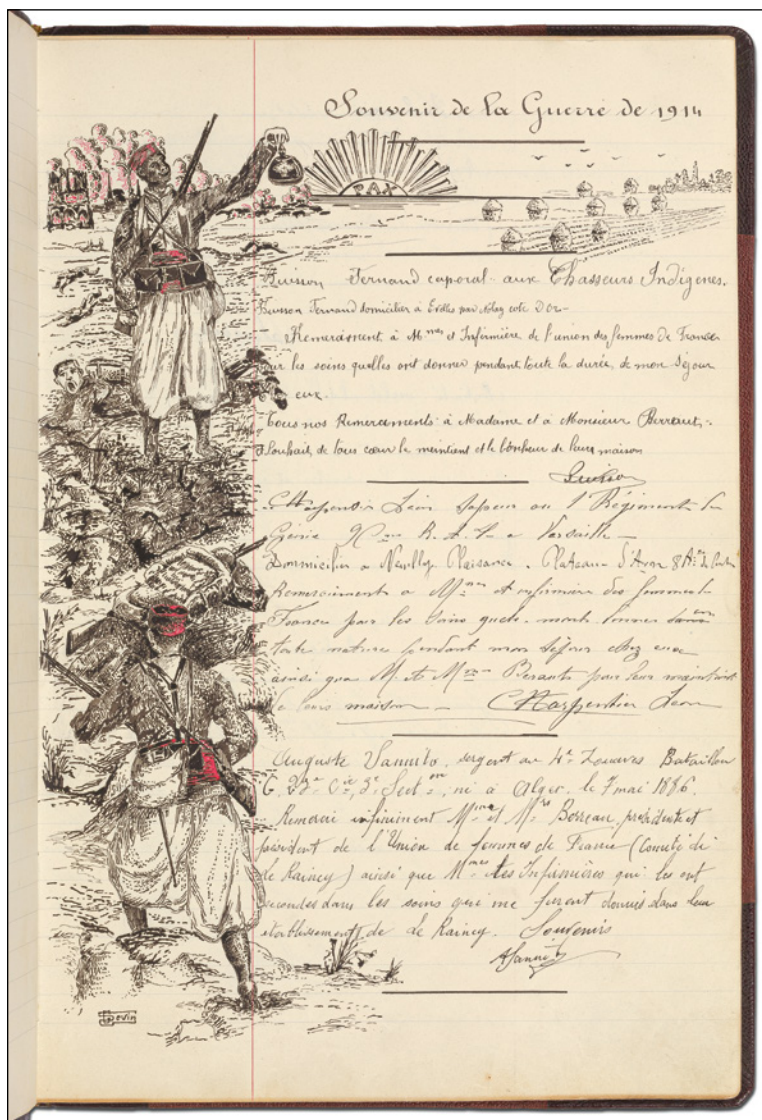 Souvenir de la Guerre de 1914
PAX
Buisson Fernand caporal aux Chasseurs Indigènes.
Buisson Fernand domicilier à par Nolay cote D'or
Remerciment à M.mes et Infirmière de l'union des femmes de France
pour les soins quelles ont donner pendant toute la durée, de mon séjour
eux
Tous nos Remerciments à Madame et à Monsieur
Souhait de tous cœur le meintient et le bonheur de leurs maison
Buisson
Charpentier Léon Sapeur au 1 Régiment du
Génie à Versaille
Dommicilier a Neuilly Plaisance. Plateau d'Avron 8
Remerciments a M.mes et infirmière des femmes de
France pour les soins donner
toute nature pendant mon séjour chez eux
ainsi que M. et M.me pour leur maintient
de leurs maison Charpentier Léon
Auguste Sannito, sergent au 4e Zouaves Bataillon
C, 23e Cie, 3e Sect on, né à Alger le 7 mai 1886.
Remercie infiniment M.me et Mr. Berreau, présidente et
président de l'Union de femmes de France (Comité de
Le Raincy) ainsi que M.mes les Infirmières qui les ont
secondés dans les soins qui me furent donnés dans leur
établissement de Le Raincy. Souvenirs
ASannito
Devin